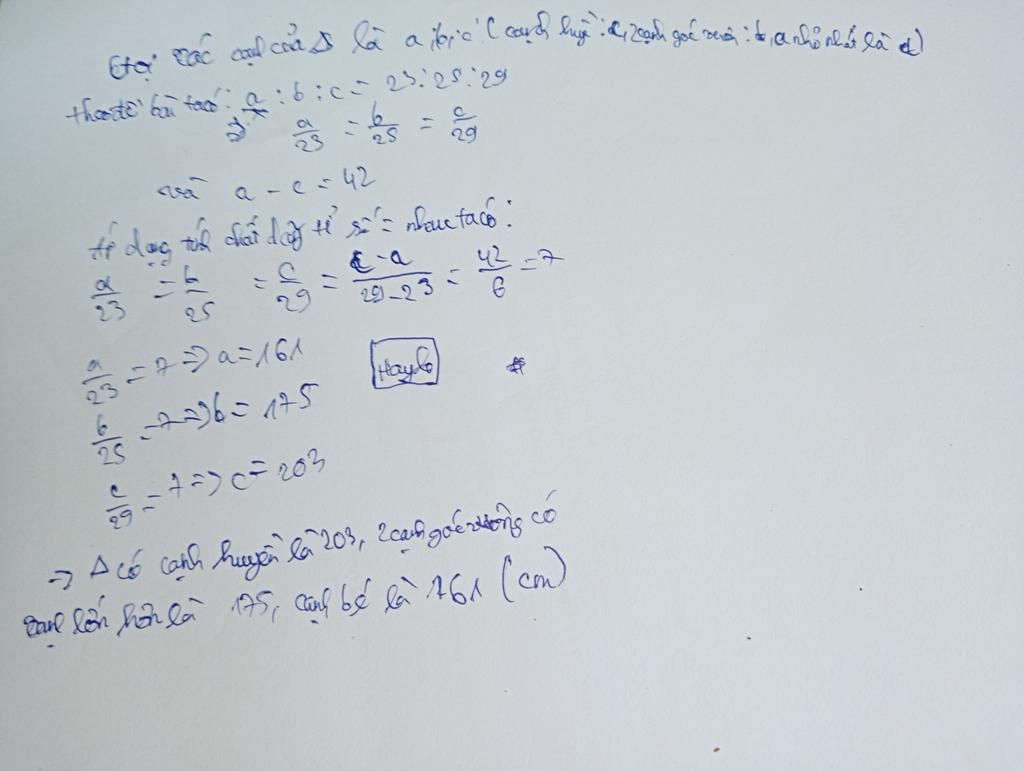 Gọi các cạnh của Δ là a, b, c (cạnh huyền: c, 2 cạnh góc vuông: b, a nhỏ nhất là a)
theo đề bài ta có: a : b : c = 23 : 25 : 29
=> a/23 = b/25 = c/29
và a - c = 42
Áp dụng tính chất dãy tỉ số = nhau ta có:
a/23 = b/25 = c/29 = c-a/29-23 = 42/6 = 7
a/23 = 7 => a = 161
b/25 = 7 => b = 175
c/29 = 7 => c = 203
=> Δ có cạnh huyền là 203, 2 cạnh góc vuông có
cạnh lớn hơn là 175, cạnh bé là 161 (cm)